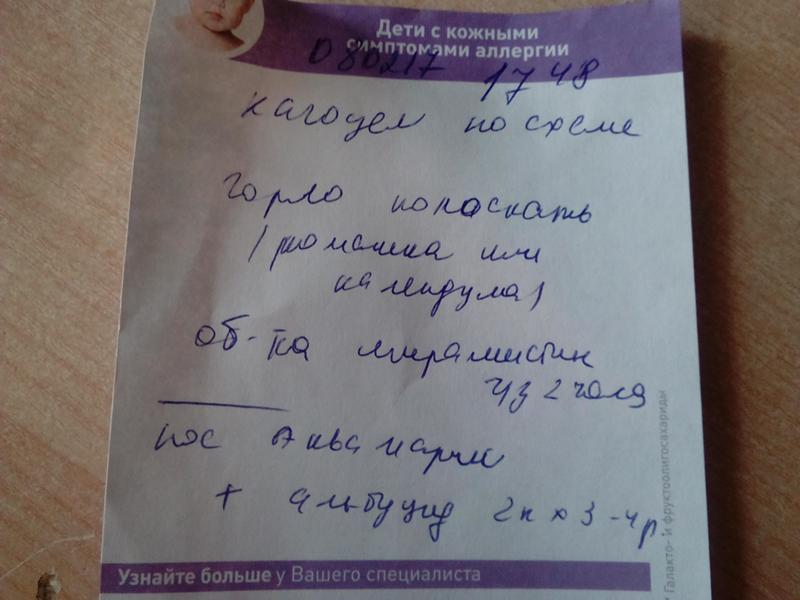 Дети с кожными
симптомами аллергии
080217 1748
Кагоцел по схеме
горло полоскать
(ромашка или
календула)
об-ка мирамистин
чз 2 часа
нос Аквамарис
+ альбуцид 2к х 3-4р.
Узнайте больше у Вашего специалиста
* Галакто- и фруктоолигосахариды